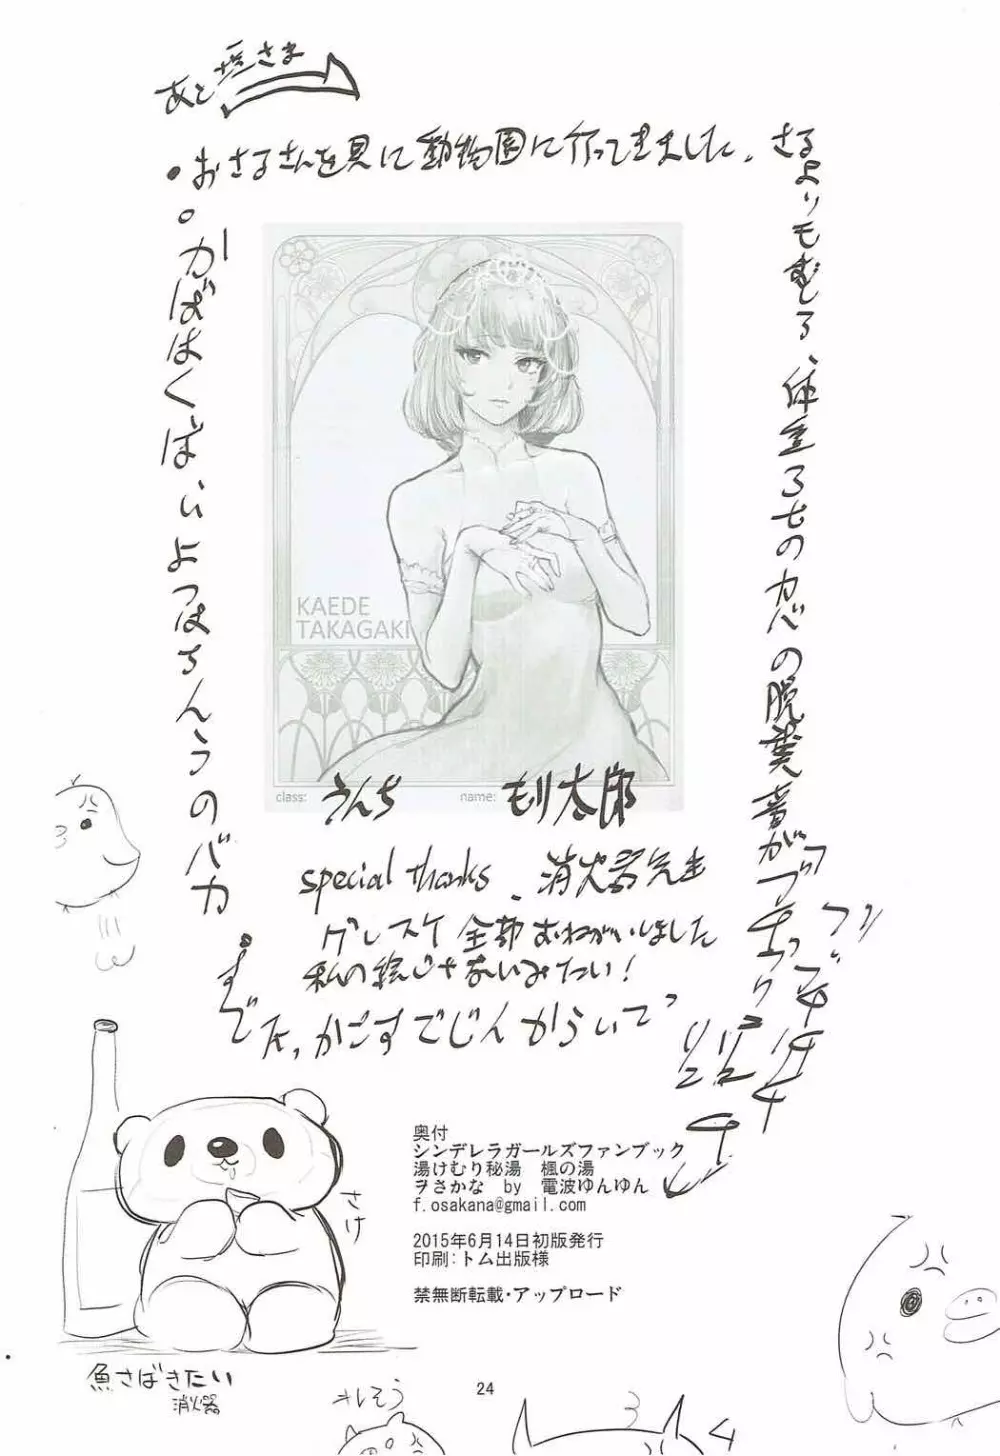 ・おさるさんを見に動物園に行ってきました。
さるよりもむしろ、体重3tのカバの脱糞音が
ばはくばいよつはちんうのバカ
KAEDE
TAKAGAKI
class: うんち name: もり太郎
special thanks 消火器先生
グレスケ全部おねがいしました
私の絵じゃないみたい!
かごすでじんからいてっ
奥付
シンデレラガールズファンブック
湯けむり秘湯 楓の湯
ヲさかな by 電波ゆんゆん
f.osakana@gmail.com
2015年6月14日初版発行
印刷:トム出版様
禁無断転載・アップロード
さけ
魚さばきたい
消火器
24